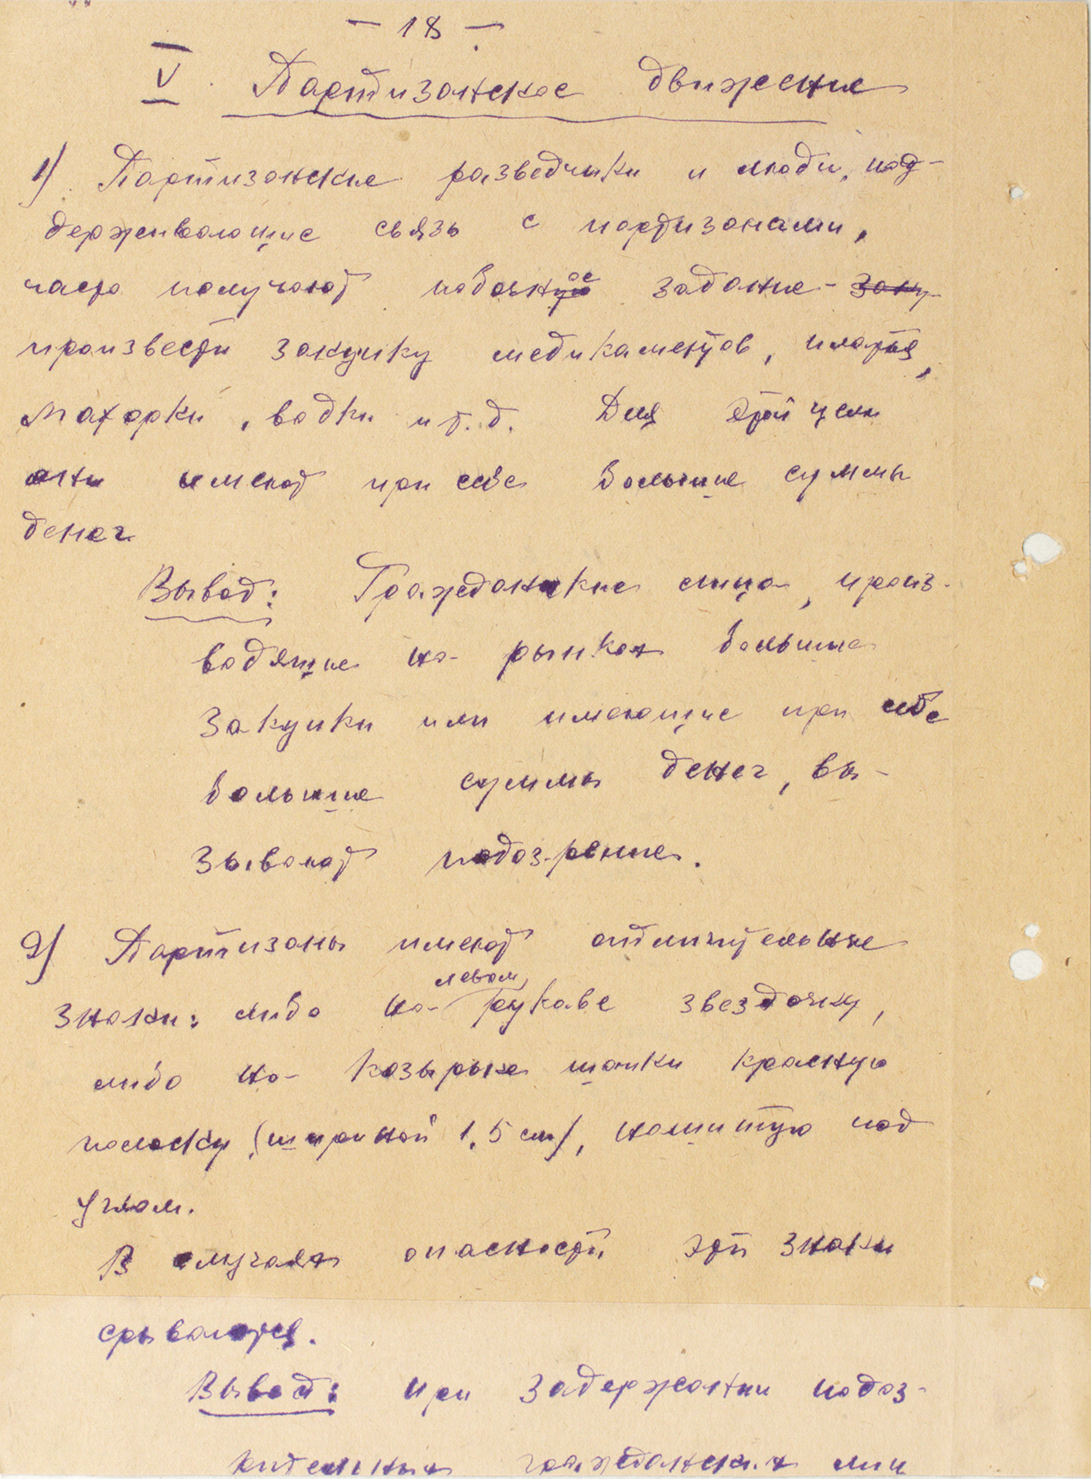 - 18 -
V. Партизанское движение
1) Партизанские разведчики и люди, под-
держивающие связь с партизанами,
часто получают побочное задание - заку-
произвести закупку медикаментов, платья,
махорки, водки и т.д. Для этой цели
они имеют при себе большие суммы
денег
Вывод: Гражданские лица, произ-
водящие на рынках большие
закупки или имеющие при себе
большие суммы денег, вы-
зывают подозрение.
2) Партизаны имеют отличительные
знаки: либо на левом рукаве звездочку,
либо на козырьке шапки красную
полоску (шириной 1,5 см), нашитую под
углом.
В случаях опасности эти знаки
срываются.
Вывод: при задержании подоз-
рительных гражданских лиц